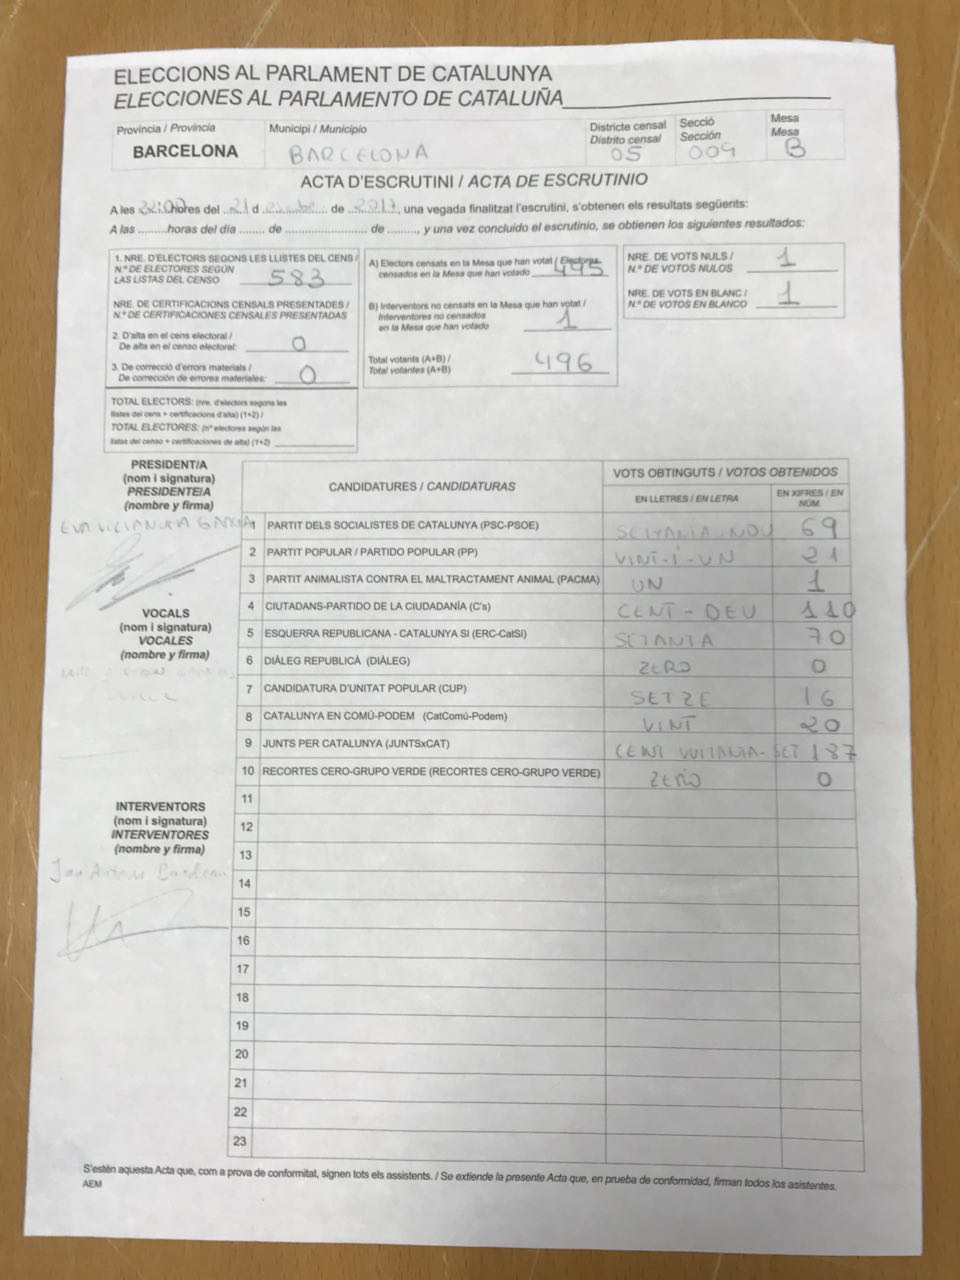 ELECCIONS AL PARLAMENT DE CATALUNYA
ELECCIONES AL PARLAMENTO DE CATALUÑA
Provincia / Provincia
BARCELONA
Municipi / Municipio
BARCELONA
Districte censal
Distrito censal
05
Secció
Sección
009
Mesa
Mesa
B
ACTA D'ESCRUTINI / ACTA DE ESCRUTINIO
A les 22:00 hores del 21 d de 2017, una vegada finalitzat l'escrutini, s'obtenen els resultats següents:
A las .........horas del día ........ de ........................ de ........, y una vez concluido el escrutinio, se obtienen los siguientes resultados:
1. NRE. D'ELECTORS SEGONS LES LLISTES DEL CENS /
N.º DE ELECTORES SEGÚN
LAS LISTAS DEL CENSO 583
NRE. DE CERTIFICACIONS CENSALS PRESENTADES /
N.º DE CERTIFICACIONES CENSALES PRESENTADAS
2. D'alta en el cens electoral /
De alta en el censo electoral: 0
3. De correcció d'errors materials /
De corrección de errores materiales: 0
TOTAL ELECTORS: (nre. d'electors segons les
llistes del cens + certificacions d'alta) (1+2) /
TOTAL ELECTORES: (nº electores según las
listas del censo + certificaciones de alta) (1+2)
A) Electors censats en la Mesa que han votat / Electores
censados en la Mesa que han votado 495
B) Interventors no censats en la Mesa que han votat /
Interventores no censados
en la Mesa que han votado 1
Total votants (A+B) /
Total votantes (A+B) 496
NRE. DE VOTS NULS /
N.º DE VOTOS NULOS 1
NRE. DE VOTS EN BLANC /
N.º DE VOTOS EN BLANCO 1
PRESIDENT/A
(nom i signatura)
PRESIDENTE/A
(nombre y firma)
EVA
VOCALS
(nom i signatura)
VOCALES
(nombre y firma)
INTERVENTORS
(nom i signatura)
INTERVENTORES
(nombre y firma)
CANDIDATURES / CANDIDATURAS
VOTS OBTINGUTS / VOTOS OBTENIDOS
EN LLETRES / EN LETRA
EN XIFRES / EN NÚM.
1 PARTIT DELS SOCIALISTES DE CATALUNYA (PSC-PSOE) SEIXANTA-NOU 69
2 PARTIT POPULAR / PARTIDO POPULAR (PP) VINT-I-UN 21
3 PARTIT ANIMALISTA CONTRA EL MALTRACTAMENT ANIMAL (PACMA) UN 1
4 CIUTADANS-PARTIDO DE LA CIUDADANÍA (C's) CENT-DEU 110
5 ESQUERRA REPUBLICANA - CATALUNYA SI (ERC-CatSI) SETANTA 70
6 DIÀLEG REPUBLICÀ (DIÀLEG) ZERO 0
7 CANDIDATURA D'UNITAT POPULAR (CUP) SETZE 16
8 CATALUNYA EN COMÚ-PODEM (CatComú-Podem) VINT 20
9 JUNTS PER CATALUNYA (JUNTSxCAT) CENT VUITANTA-SET 187
10 RECORTES CERO-GRUPO VERDE (RECORTES CERO-GRUPO VERDE) ZERO 0
11
12
13
14
15
16
17
18
19
20
21
22
23
S'estén aquesta Acta que, com a prova de conformitat, signen tots els assistents. / Se extiende la presente Acta que, en prueba de conformidad, firman todos los asistentes.
AEM